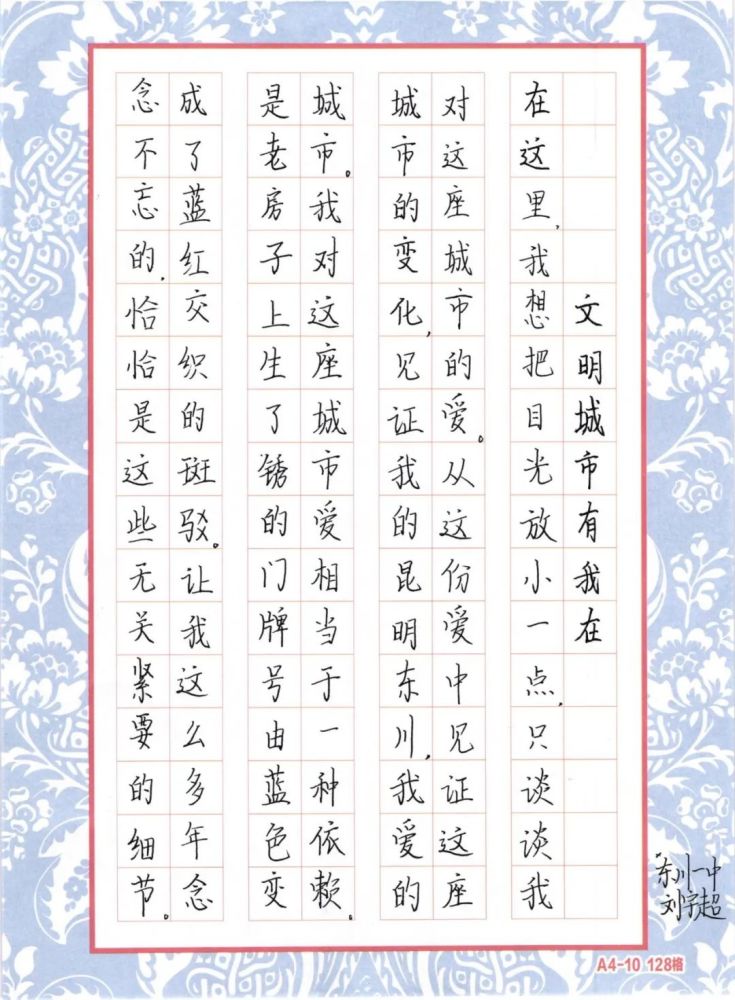 文明城市有我在
在这里,我想把目光放小一点,只谈谈我
对这座城市的爱。从这份爱中见证这座
城市的变化,见证我的昆明东川,我爱的
城市。我对这座城市爱相当于一种依赖。
是老房子上生了锈的门牌号由蓝色变
成了蓝红交织的斑驳。让我这么多年念
念不忘的,恰恰是这些无关紧要的细节。
东川一中
A4-10 128格